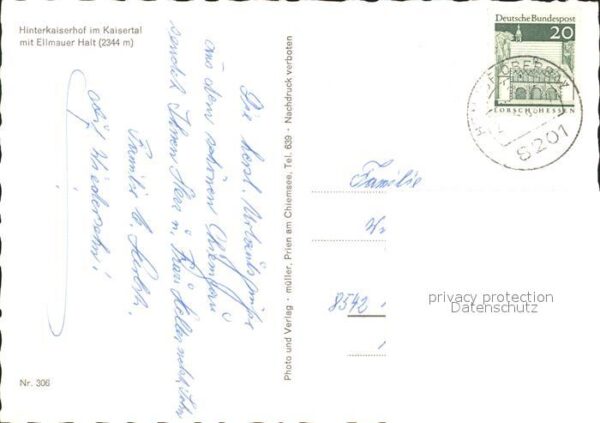 Hinterkaiserhof im Kaisertal
mit Ellmauer Halt (2344 m)
Die herzl. Urlaubsgrüße
aus dem schönen Chiemgau
sendet Ihnen Herr u. Frau
Familie
auf Wiedersehn!
Nr. 306
Photo und Verlag · müller, Prien am Chiemsee, Tel. 639 · Nachdruck verboten
Deutsche Bundespost
20
LORSCH/HESSEN
8201
Familie
8542
privacy protection
Datenschutz